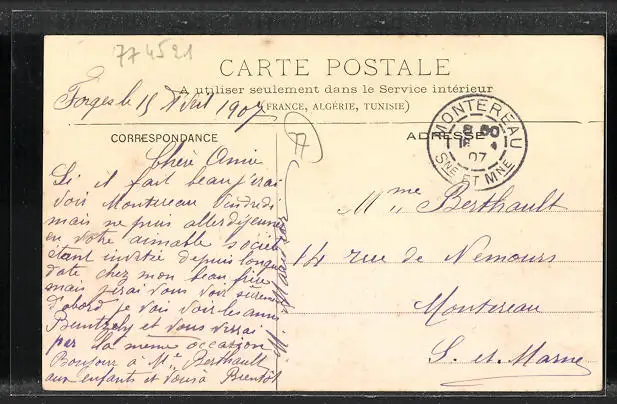 774521
CARTE POSTALE
A utiliser seulement dans le Service intérieur
(FRANCE, ALGÉRIE, TUNISIE)
Forges le 15 Avril 1907
77
CORRESPONDANCE
ADRESSE
MONTEREAU
8 50
07
SNE ET MNE
Chère Amie
Si il fait beau j'irai
voir Montereau Vendredi
mais ne puis aller déjeuner
en votre aimable société
étant invitée depuis longue
date chez mon beau frère
mais j'irai vous voir sûrement
d'abord je vais voir les amis
et vous verrai
par la même occasion
Bonjour à Mr Berthault
aux enfants et vous à Bientôt
M.
Mme Berthault
14 rue de Nemours
Montereau
S. et Marne